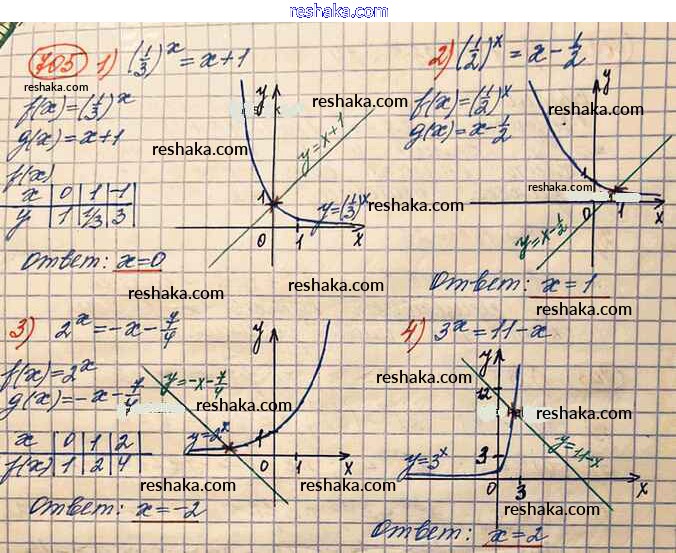 reshaka.com
705 1) (1/3)^x = x+1
reshaka.com
f(x)=(1/3)^x
g(x)=x+1
reshaka.com
f(x)
x 0 1 -1
y 1 1/3 3
reshaka.com
y
y=x+1
1
y=(1/3)^x
0 1 x
reshaka.com
Ответ: x=0
reshaka.com
2) (1/2)^x = x - 1/2
f(x)=(1/2)^x
g(x)=x-1/2
reshaka.com
reshaka.com
y
1
reshaka.com
0 1 x
y=x-1/2
reshaka.com
Ответ: x=1
reshaka.com
3) 2^x=-x-7/4
reshaka.com
f(x)=2^x
g(x)=-x-7/4
reshaka.com
x 0 1 2
f(x) 1 2 4
y
y=-x-7/4
reshaka.com
y=2^x
1
0 1 x
reshaka.com
reshaka.com
Ответ: x=-2
4) 3^x=11-x
reshaka.com
y
12
reshaka.com
y=11-x
3
y=3^x
reshaka.com
0 3 x
reshaka.com
Ответ: x=2
reshaka.com